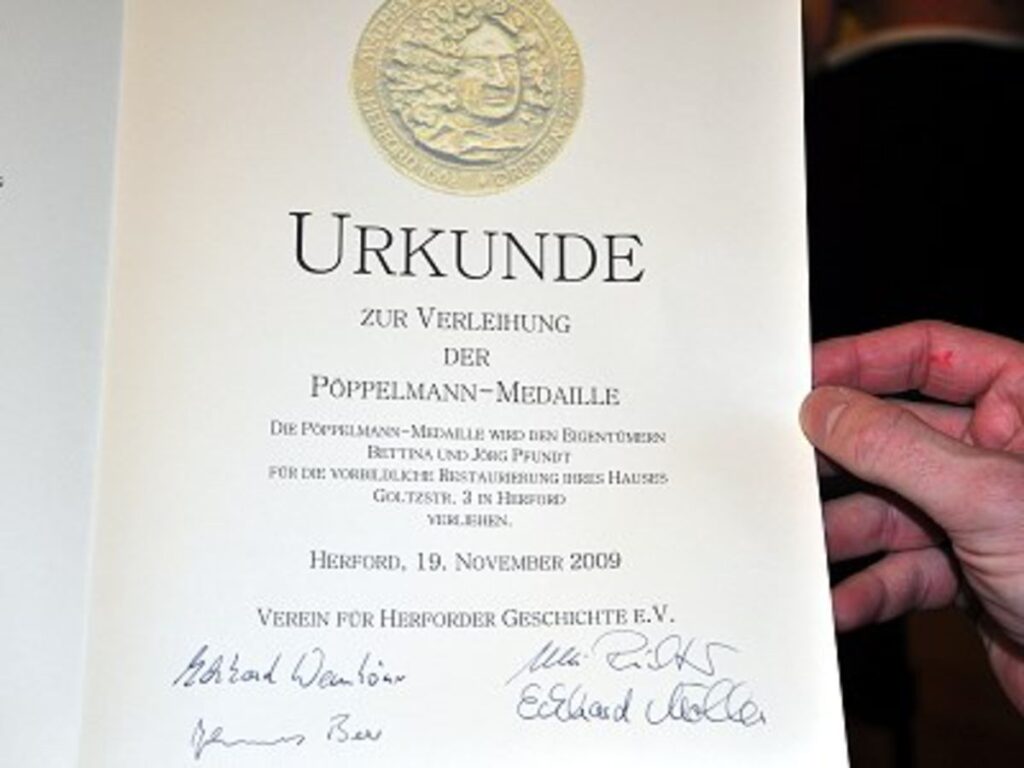 URKUNDE
ZUR VERLEIHUNG
DER
PÖPPELMANN-MEDAILLE
DIE PÖPPELMANN-MEDAILLE WIRD DEN EIGENTÜMERN
BETTINA UND JÖRG PFUNDT
FÜR DIE VORBILDLICHE RESTAURIERUNG IHRES HAUSES
GOLTZSTR. 3 IN HERFORD
VERLIEHEN.
HERFORD, 19. NOVEMBER 2009
VEREIN FÜR HERFORDER GESCHICHTE E.V.
Eckhard Möller